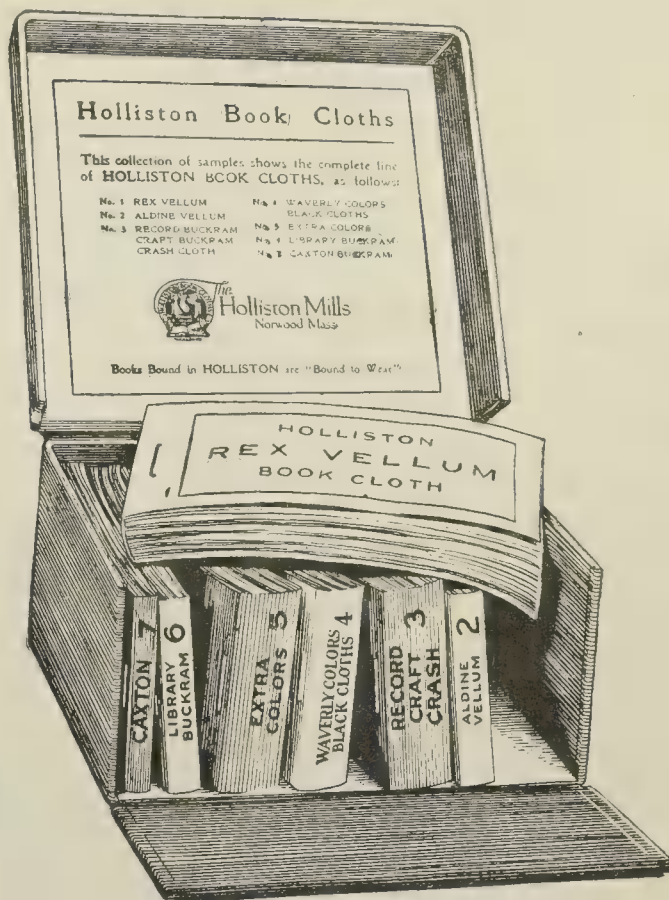 Holliston Book Cloths
This collection of samples shows the complete line
of HOLLISTON BOOK CLOTHS, as follows:
No. 1 REX VELLUM
No. 2 ALDINE VELLUM
No. 3 RECORD BUCKRAM
CRAFT BUCKRAM
CRASH CLOTH
No. 4 WAVERLY COLORS
BLACK CLOTHS
No. 5 EXTRA COLORS
LIBRARY BUCKRAM
CAXTON BUCKRAM
The
Holliston Mills
Norwood Mass
Books Bound in HOLLISTON are "Bound to Wear"
HOLLISTON
REX VELLUM
BOOK CLOTH
CAXTON 7
LIBRARY
BUCKRAM 6
EXTRA
COLORS 5
WAVERLY COLORS
BLACK CLOTHS 4
RECORD
CRAFT
CRASH 3
ALDINE
VELLUM 2